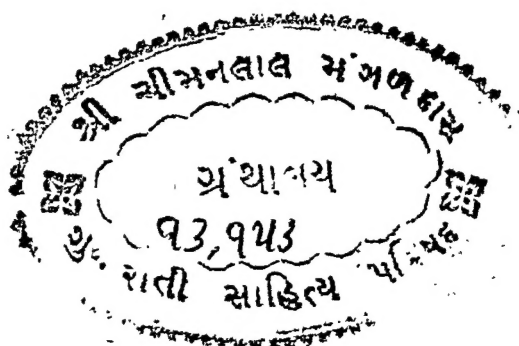 શ્રી ચીમનલાલ મંગળદાસ
ગ્રંથાલય
૧૩,૧૫૩
ગુજરાતી સાહિત્ય પરિષદ